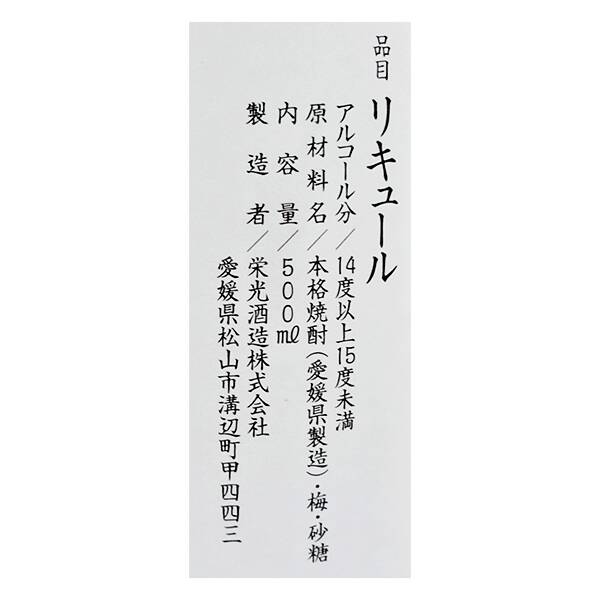 品目 リキュール
アルコール分/14度以上15度未満
原材料名/本格焼酎(愛媛県製造)・梅・砂糖
内容量/500ml
製造者/栄光酒造株式会社
愛媛県松山市溝辺町甲四四三